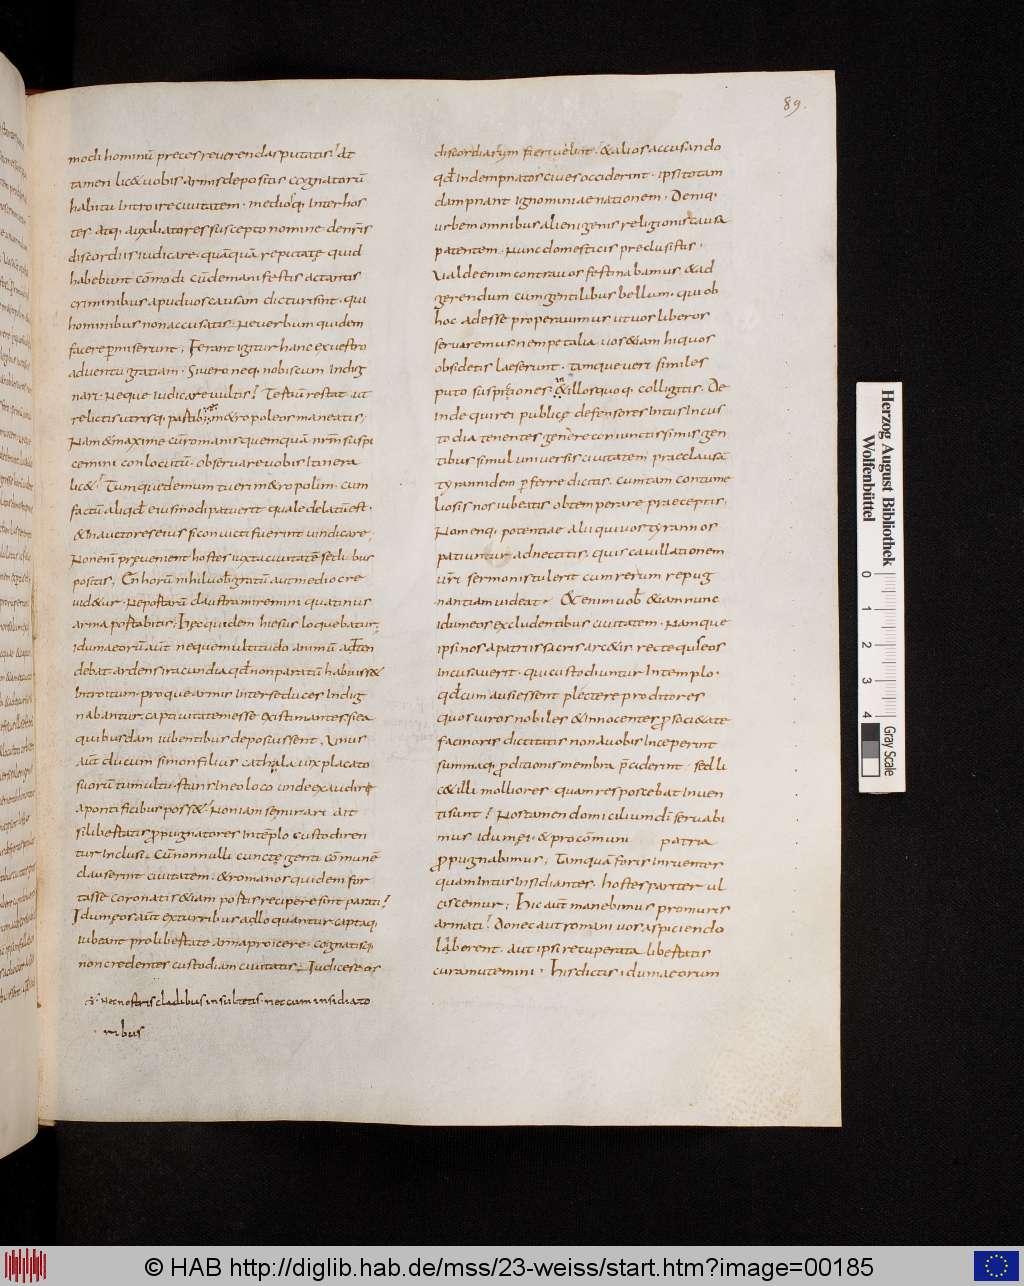 89.
modi hominū preces reverendas putatis? At
tamen lic& uobis armis depositis cognatorū
habitu introire ciuitatem. medioſq; inter hos
tes atq; auxiliatores suscepto nomine. de nr̄is
discordiis iudicare. quāquā reputate quid
habebunt cōmodi cū de manifestis actantis
criminibus apud uos causam dicturi sint. qui
hominibus non accusatis. Ne uerbum quidem
facere p̄miserunt; Ferant igitur hanc ex uestro
aduentu gratiam. Si uero neq; nobiscum indig
nari. neque iudicare uultis? Tertiū restat ut
relictis utrisq;
Nam & maxime cū romanis quemquā nr̄m suspi
cemini conlocutū. obseruare uobis itinera
lic&? Tumque demum tueri m&ropolim. cum
factū aliqd̄ eiusmodi patuerit quale delatū est.
& in auctores eius si conuicti fuerint uindicare;
Non enī preuenient hostes iuxta ciuitatē sedibus
positis; En horū nihil uob̄ gratū aut mediocre
uid&ur. Ne portarū claustra miremini quatinus
arma portabitis; Hęc quidem hiesus loquebatur;
idumaeorū aūt neque multitudo animū adten
debat ardens iracundia qd̄ non paratū habuiss&
introitum. pro que armis inter se duces indig
nabantur. captiuitatem esse existimantes si ea
quibusdam iubentibus deposuissent. Unus
aūt ducum simon filius cathala uix placato
suorū tumultu. stans in eo loco unde exaudiri
a pontificibus poss&? Non iam se mirari ait
si libertatis p̄pugnatores in tēplo custodiren
tur inclusi. Cū nonnulli cunctę genti cōmunē
clauserint ciuitatem. & romanos quidem for
tasse coronatis &iam portis recipere sint parati?
Idumęos aūt ex turribus adloquantur captaq;
iubeant pro libertate arma proicere. cognatisq;
non credentes custodiam ciuitatis. Iudices eos
Nec nostris cladibus insultetis. nec cum insidiato
ribus
discordiarum fieri uelint. & alios accusando
qd̄ indempnatos ciues occiderint. ipsi totam
dampnant ignominiae nationem. Deniq;
urbem omnibus alienigenis religionis causa
patentem. Nunc domesticis preclusistis.
Ualde enim contra uos festinabamus & ad
gerendum cum gentilibus bellum. qui ob
hoc adesse properauimus ut uos liberos
seruaremus nempe talia uos &iam hi quos
obsidetis laeserunt. tamque ueri similes
puto suspiciones. & illos quoq; colligitis. De
inde qui rei publicę defensores intus in cus
todia tenentes. genere coniunctissimis gen
tibus simul uniuersis ciuitatem praeclausā
tyrannidem p̄ferre dictis. cum tam contume
liosis nos iubeatis obtemperare praeceptis.
Nomenq; potentiae alii qui uos tyrannos
patiuntur adnectitis. quis cauillationem
ur̄i sermonis tulerit cum rerum repug
nantiam uideat. & enim uob̄ &iam nunc
idumeos excludentibus ciuitatem. Namque
ipsi nos a patriis sacris arc&is recte quis eos
incusauerit. qui custodiuntur in templo.
qd̄ cum ausi essent plectere proditores
quos uiros nobiles & innocentes p̄ soci&ate
facinoris dictitatis non a uobis inceperint
summaq; p̄ditionis membra p̄ciderint. sed li
c& illi molliores. quam res poscebat inuen
ti sunt? Nos tamen domicilium dī seruabi
mus idumęi. & pro cōmuni patria
p̄pugnabimus; Tamquā foris inruentes
quam intus insidiantes. hostes pariter ul
ciscemur; Hic aūt manebimus pro muris
armati? Donec aut romani uos aspiciendo
liberent. aut ipsi recuperata libertatis
cura mutemini. His dictis idumaeorum
Herzog August Bibliothek
Wolfenbüttel
0 1 2 3 4
Gray Scale
© HAB http://diglib.hab.de/mss/23-weiss/start.htm?image=00185